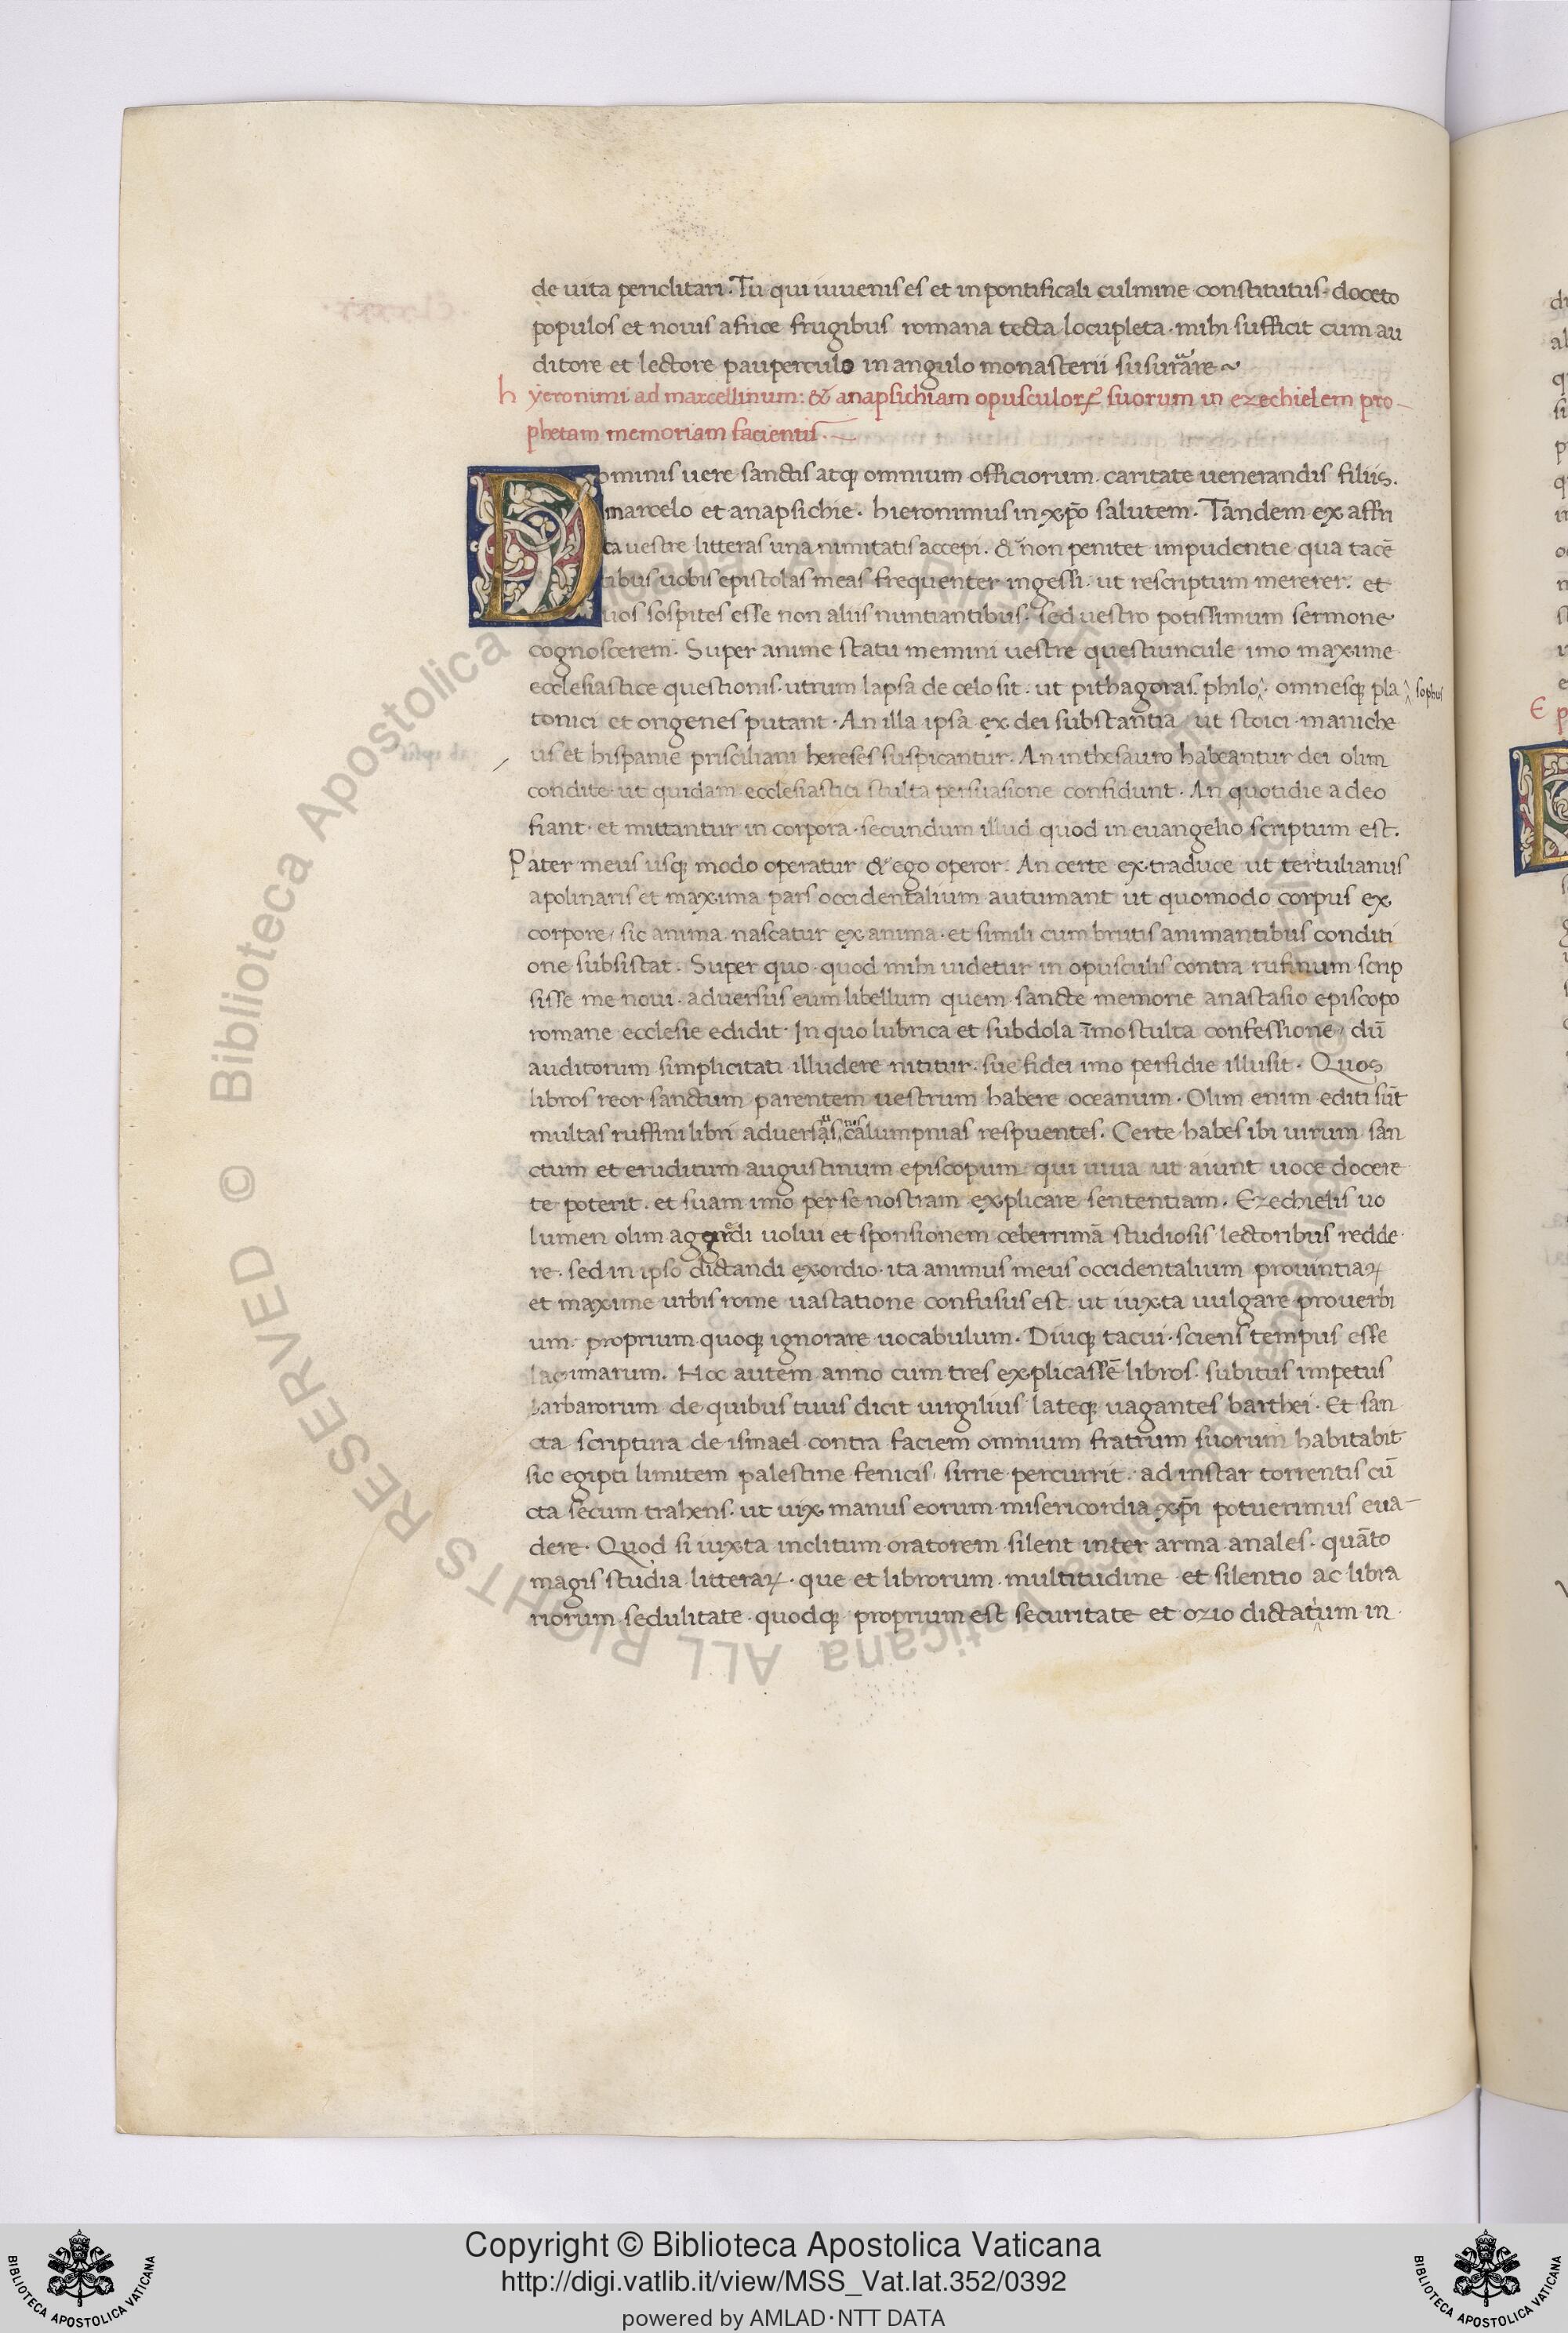 de uita periclitari. Tu qui iuuenis es et in pontificali culmine constitutus. doceto
populos et nouis africe frugibus romana tecta locupleta. mihi sufficit cum au
ditore et lectore pauperculo in angulo monasterii susurrare~
hyeronimi ad marcellinum: & anapsichiam opusculoꝝ suorum in ezechielem pro-
phetam memoriam facientis.
Dominis uere sanctis atqꝫ omnium officiorum caritate uenerandis filiis.
marcelo et anapsichie. hieronimus in xp̄o salutem. Tandem ex affri
ca uestre litteras una nimitatis accepi. & non penitet impudentie qua tacē
tibus uobis epistolas meas frequenter ingessi. ut rescriptum mererer. et
uos sospites esse non aliis nuntiantibus. sed uestro potissimum sermone
cognoscerem. Super anime statu memini uestre questiuncule imo maxime
ecclesiastice questionis. utrum lapsa de celo sit. ut pithagoras. philo omnesqꝫ pla sophus
tonici et origenes putant. An illa ipsa ex dei substantia ut stoici maniche
us et hispanie prisciliani hereses suspicantur. An in thesauro habeantur dei olim
condite. ut quidam ecclesiastici stulta persuasione confidunt. An quotidie a deo
fiant. et mittantur in corpora. secundum illud quod in euangelio scriptum est.
Pater meus usqꝫ modo operatur & ego operor. An certe ex traduce ut tertulianus
apolinaris et maxima pars occidentalium autumant ut quomodo corpus ex
corpore, sic anima nascatur ex anima. et simili cum brutis animantibus conditi
one subsistat. Super quo quod mihi uidetur in opusculis contra rufinum scrip
sisse me noui. aduersus eum libellum quem sancte memorie anastasio episcopo
romane ecclesie edidit. In quo lubrica et subdola īmo stulta confessione, dū
auditorum simplicitati illudere nititur. sue fidei imo perfidie illusit. Quos
libros reor sanctum parentem uestrum habere oceanum. Olim enim editi sūt
multas ruffini libri aduersas calumpnias respuentes. Certe habes ibi uirum san
ctum et eruditum augustinum episcopum. qui uiua ut aiunt uoce docere
te poterit. et suam imo per se nostram explicare sententiam. Ezechielis uo
lumen olim aggredi uolui et sponsionem ceberrimā studiosis lectoribus redde
re. sed in ipso dictandi exordio. ita animus meus occidentalium prouintiaꝝ
et maxime urbis rome uastatione confusus est. ut iuxta uulgare prouerbi
um. proprium quoqꝫ ignorare uocabulum. Diuqꝫ tacui. sciens tempus esse
lacrimarum. Hoc autem anno cum tres explicassē libros. subitus impetus
barbarorum de quibus tuus dicit uirgilius lateqꝫ uagantes barthei. Et san
cta scriptura de ismael contra faciem omnium fratrum suorum habitabit
sic egipti limitem palestine fenicis, sirie percurrit. ad instar torrentis cū
cta secum trahens. ut uix manus eorum misericordia xp̄i potuerimus eua-
dere. Quod si iuxta inclitum oratorem silent inter arma anales. quāto
magis studia litteraꝝ. que et librorum multitudine et silentio ac libra
riorum sedulitate. quodqꝫ proprium est securitate et ozio dictatum in
Copyright © Biblioteca Apostolica Vaticana
http://digi.vatlib.it/view/MSS_Vat.lat.352/0392
powered by AMLAD·NTT DATA